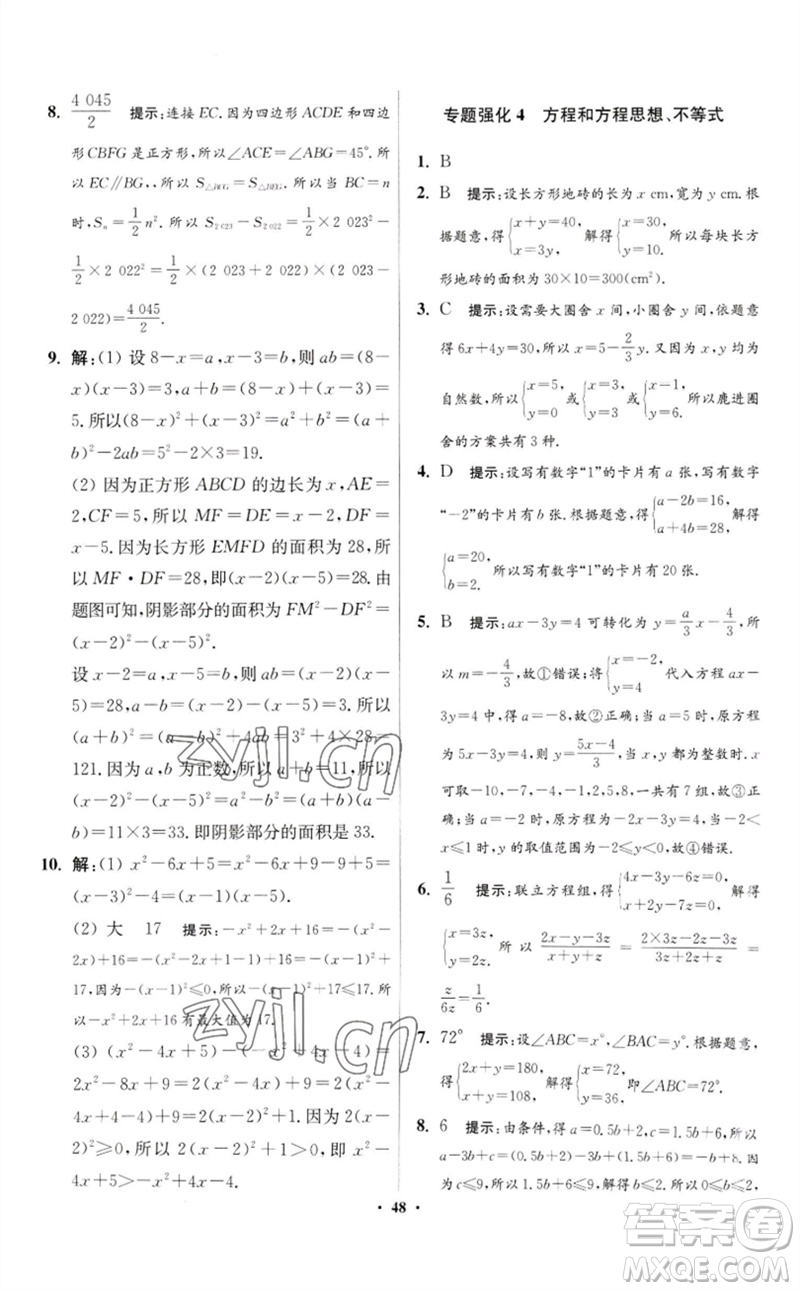 8. 4 045/2 提示:连接 EC. 因为四边形 ACDE 和四边
形 CBFG 是正方形,所以∠ACE=∠ABG=45°. 所
以 EC∥BG,,所以 S△BCG=S△BEG. 所以当 BC=n
时,Sₙ=1/2 n². 所以 S₂₀₂₃-S₂₀₂₂=1/2×2 023²-
1/2×2 022²=1/2×(2 023+2 022)×(2 023-
2 022)=4 045/2.
9. 解:(1) 设 8-x=a,x-3=b,则 ab=(8-
x)(x-3)=3,a+b=(8-x)+(x-3)=
5. 所以(8-x)²+(x-3)²=a²+b²=(a+
b)²-2ab=5²-2×3=19.
(2) 因为正方形 ABCD 的边长为 x,AE=
2,CF=5,所以 MF=DE=x-2,DF=
x-5. 因为长方形 EMFD 的面积为 28,所
以 MF·DF=28,即(x-2)(x-5)=28. 由
题图可知,阴影部分的面积为 FM²-DF²=
(x-2)²-(x-5)².
设 x-2=a,x-5=b,则 ab=(x-2)(x-
5)=28,a-b=(x-2)-(x-5)=3. 所以
(a+b)²=(a-b)²+4ab=3²+4×28=
121. 因为 a,b 为正数,所以 a+b=11,所以
(x-2)²-(x-5)²=a²-b²=(a+b)(a-
b)=11×3=33. 即阴影部分的面积是 33.
10. 解:(1) x²-6x+5=x²-6x+9-9+5=
(x-3)²-4=(x-1)(x-5).
(2) 大 17 提示:-x²+2x+16=-(x²-
2x)+16=-(x²-2x+1-1)+16=-(x-1)²+
17,因为-(x-1)²≤0,所以-(x-1)²+17≤17.
所以-x²+2x+16 有最大值为 17.
(3) (x²-4x+5)-(-x²+4x-4)=
2x²-8x+9=2(x²-4x)+9=2(x²-
4x+4-4)+9=2(x-2)²+1. 因为 2(x-
2)²≥0,所以 2(x-2)²+1>0,即 x²-
4x+5>-x²+4x-4.
专题强化 4 方程和方程思想、不等式
1. B
2. B 提示:设长方形地砖的长为 x cm,宽为 y cm. 根
据题意,得{x+y=40, x=3y, 解得{x=30, y=10. 所以每块长方
形地砖的面积为 30×10=300(cm²).
3. C 提示:设需要大圈舍 x 间,小圈舍 y 间,依题意
得 6x+4y=30,所以 x=5-2/3 y. 又因为 x,y 均为
自然数,所以{x=5 y=0 或{x=3 y=3 或{x=1 y=6. 所以鹿进圈
舍的方案共有 3 种.
4. D 提示:设写有数字“1”的卡片有 a 张,写有数字
“-2”的卡片有 b 张. 根据题意,得{a-2b=16, a+4b=28, 解得
{a=20, b=2. 所以写有数字“1”的卡片有 20 张.
5. B 提示:ax-3y=4 可转化为 y=a/3 x-4/3,所
以 m=-4/3,故①错误;将{x=-2, y=4 代入方程 ax-
3y=4 中,得 a=-8,故②正确;当 a=5 时,原方程
为 5x-3y=4,则 y=(5x-4)/3,当 x,y 都为整数时,x
可取-10,-7,-4,-1,2,5,8,一共有 7 组,故③正
确;当 a=-2 时,原方程为-2x-3y=4,当-2<
x≤1 时,y 的取值范围为-2≤y<0,故④错误.
6. 1/6 提示:联立方程组,得{x-3y+3z=0, x+2y-7z=0, 解得
{x=3z, y=2z. 所以 (2x-y-3z)/(x+y+z) = (2×3z-2z-3z)/(3z+2z+z) =
z/6z=1/6.
7. 72° 提示:设∠ABC=x°,∠BAC=y°. 根据题意,
得{2x+y=180, x+y=108, 解得{x=72, y=36, 即∠ABC=72°.
8. 6 提示:由条件,得 a=0.5b+2,c=1.5b+6,所以
a-3b+c=0.5b+2-3b+1.5b+6=-b+8. 因为
b≤c≤9,所以 1.5b+6≤9,所以 0≤b≤2,所以
• 48 •
zyjl.cn
zyjl.cn
答案卷
MXQE.COM